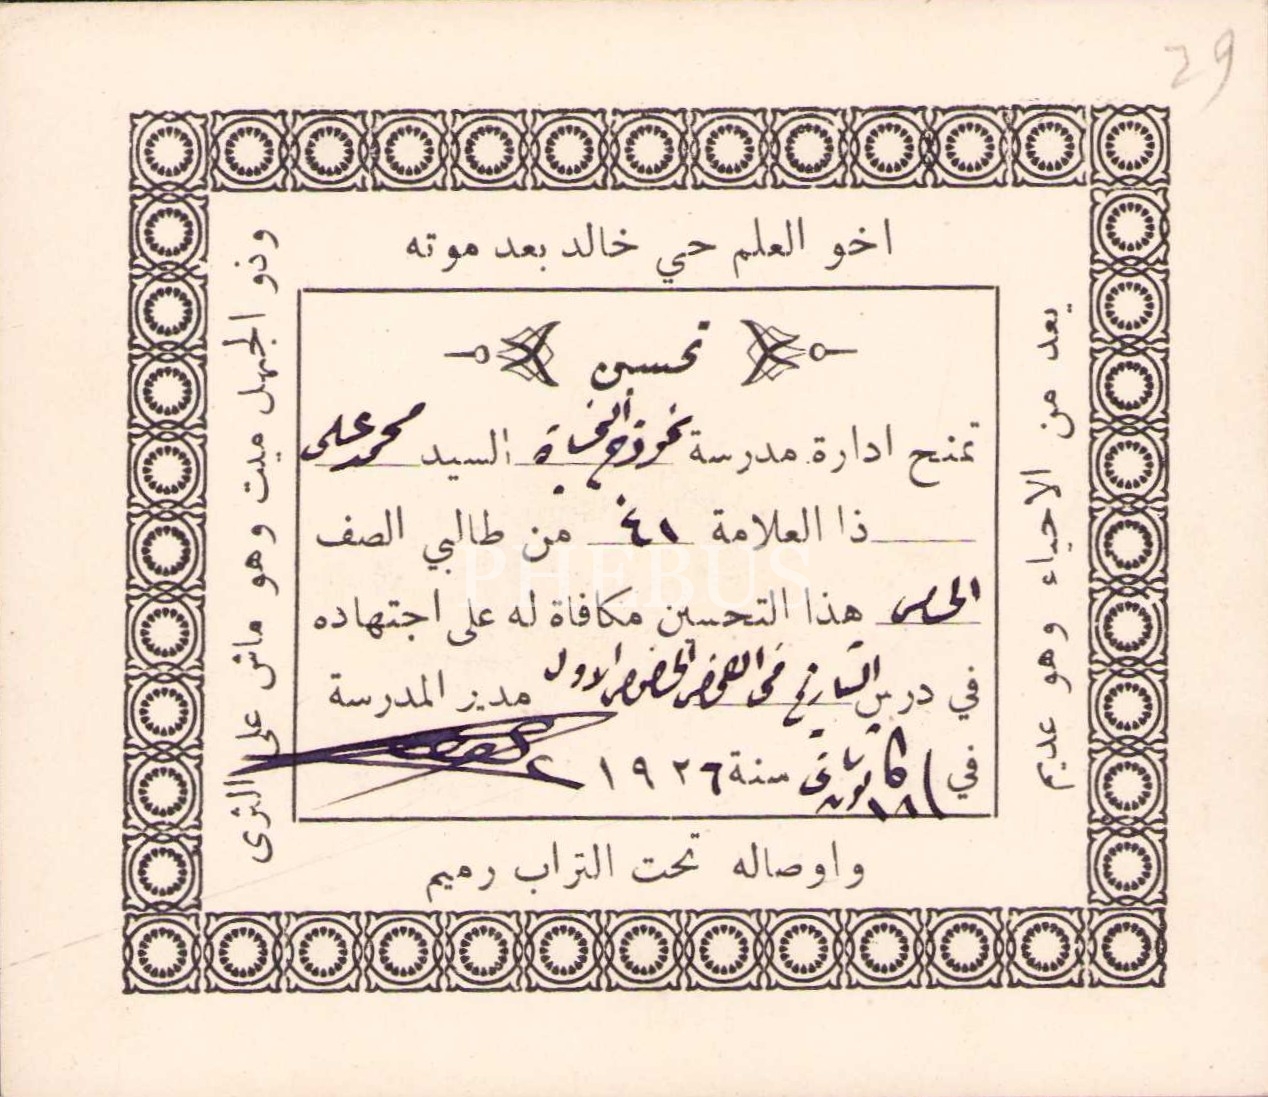 29
اخو العلم حي خالد بعد موته
واوصاله تحت التراب رميم
وذو الجهل ميت وهو ماش على الثرى
يعد من الاحياء وهو عديم
تحسين
تمنح ادارة مدرسة نموذج السيد محمد علي
ذا العلامة من طالبي الصف
هذا التحسين مكافاة له على اجتهاده
في درس التاريخ في الاول مدير المدرسة
في ١٨ كانون ثاني سنة ١٩٢٦
PHEBUS